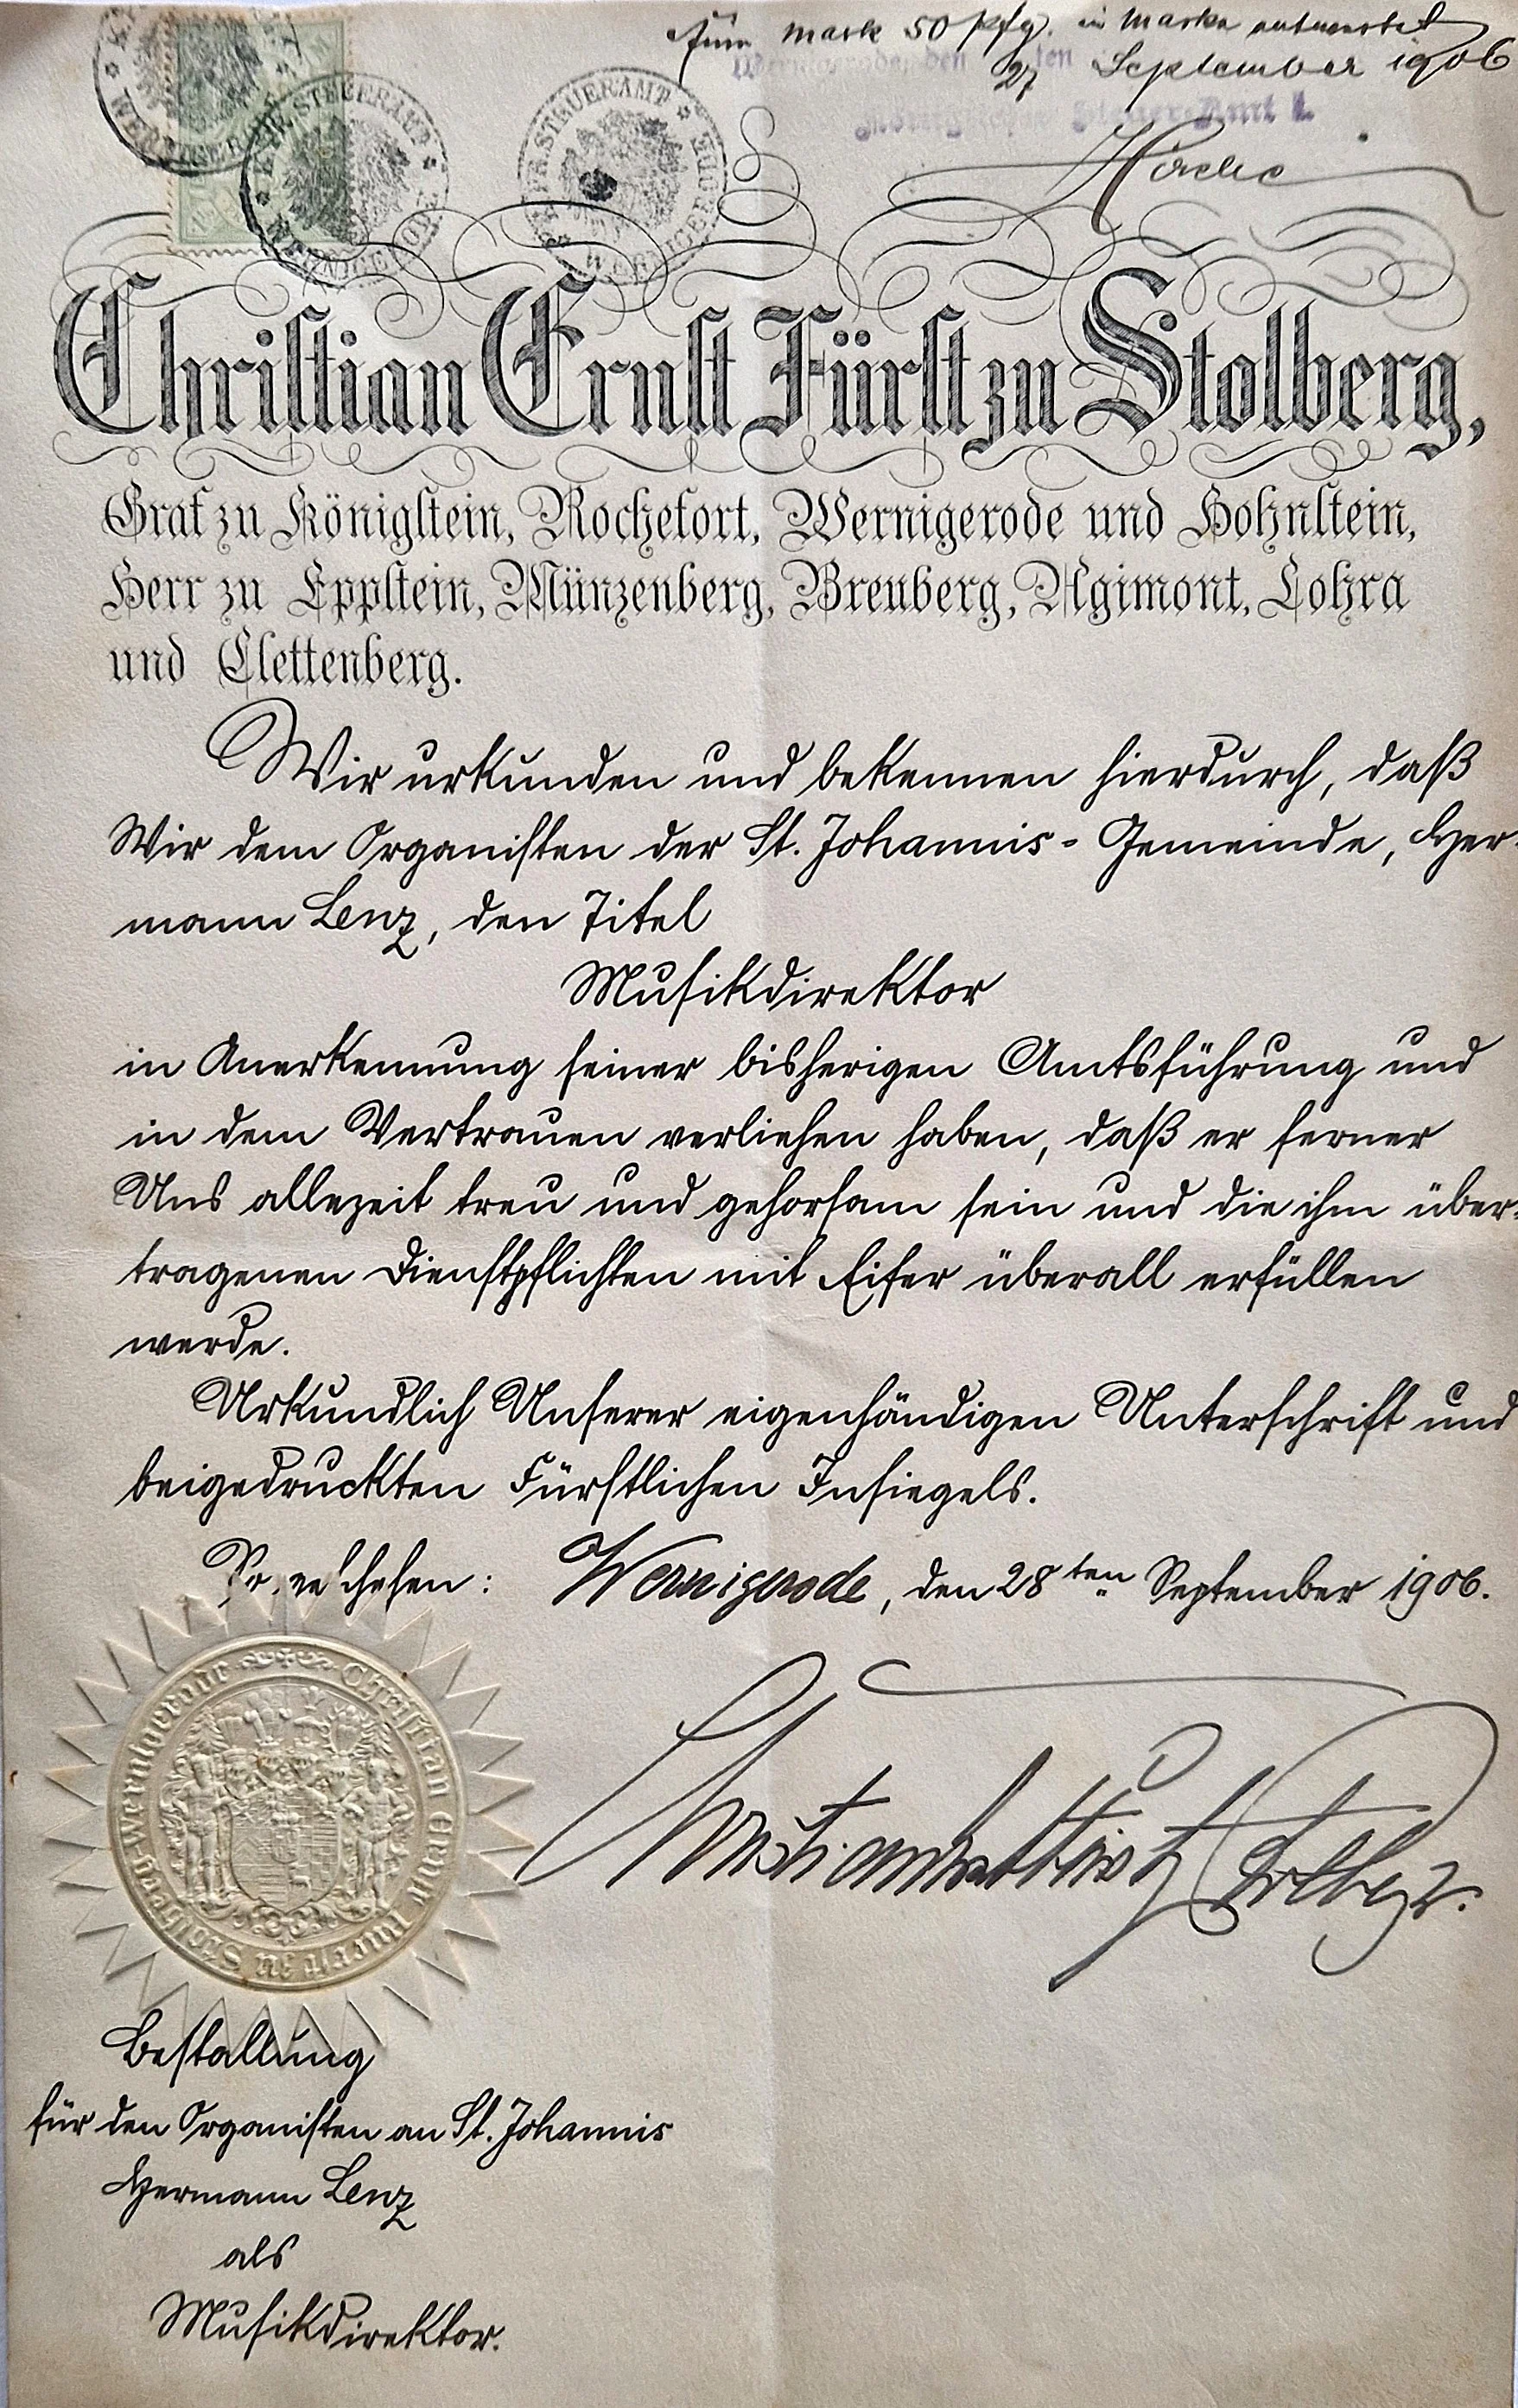 Mark 50 Pfg. in Marken entwertet
den 27ten September 1906
Steuer-Amt I.
STEUERAMT
WERNIGERODE
Christian Ernst Fürst zu Stolberg,
Graf zu Königstein, Rochefort, Wernigerode und Hohnstein,
Herr zu Eppstein, Münzenberg, Breuberg, Agimont, Lohra
und Clettenberg.
Wir urkunden und bekennen hierdurch, daß
Wir dem Organisten der St. Johannis- Gemeinde, Her-
mann Lenz, den Titel
Musikdirektor
in Anerkennung seiner bisherigen Amtsführung und
in dem Vertrauen verliehen haben, daß er ferner
Uns allezeit treu und gehorsam sein und die ihm über-
tragenen Dienstpflichten mit Eifer überall erfüllen
werde.
Urkundlich Unserer eigenhändigen Unterschrift und
beigedruckten Fürstlichen Insiegels.
So geschehen: Wernigerode, den 28ten September 1906.
Christian Ernst Fürst z Stolberg.
Christian Ernst Fuerst zu Stolberg-Wernigerode
Bestallung
für den Organisten an St. Johannis
Hermann Lenz
als
Musikdirektor.